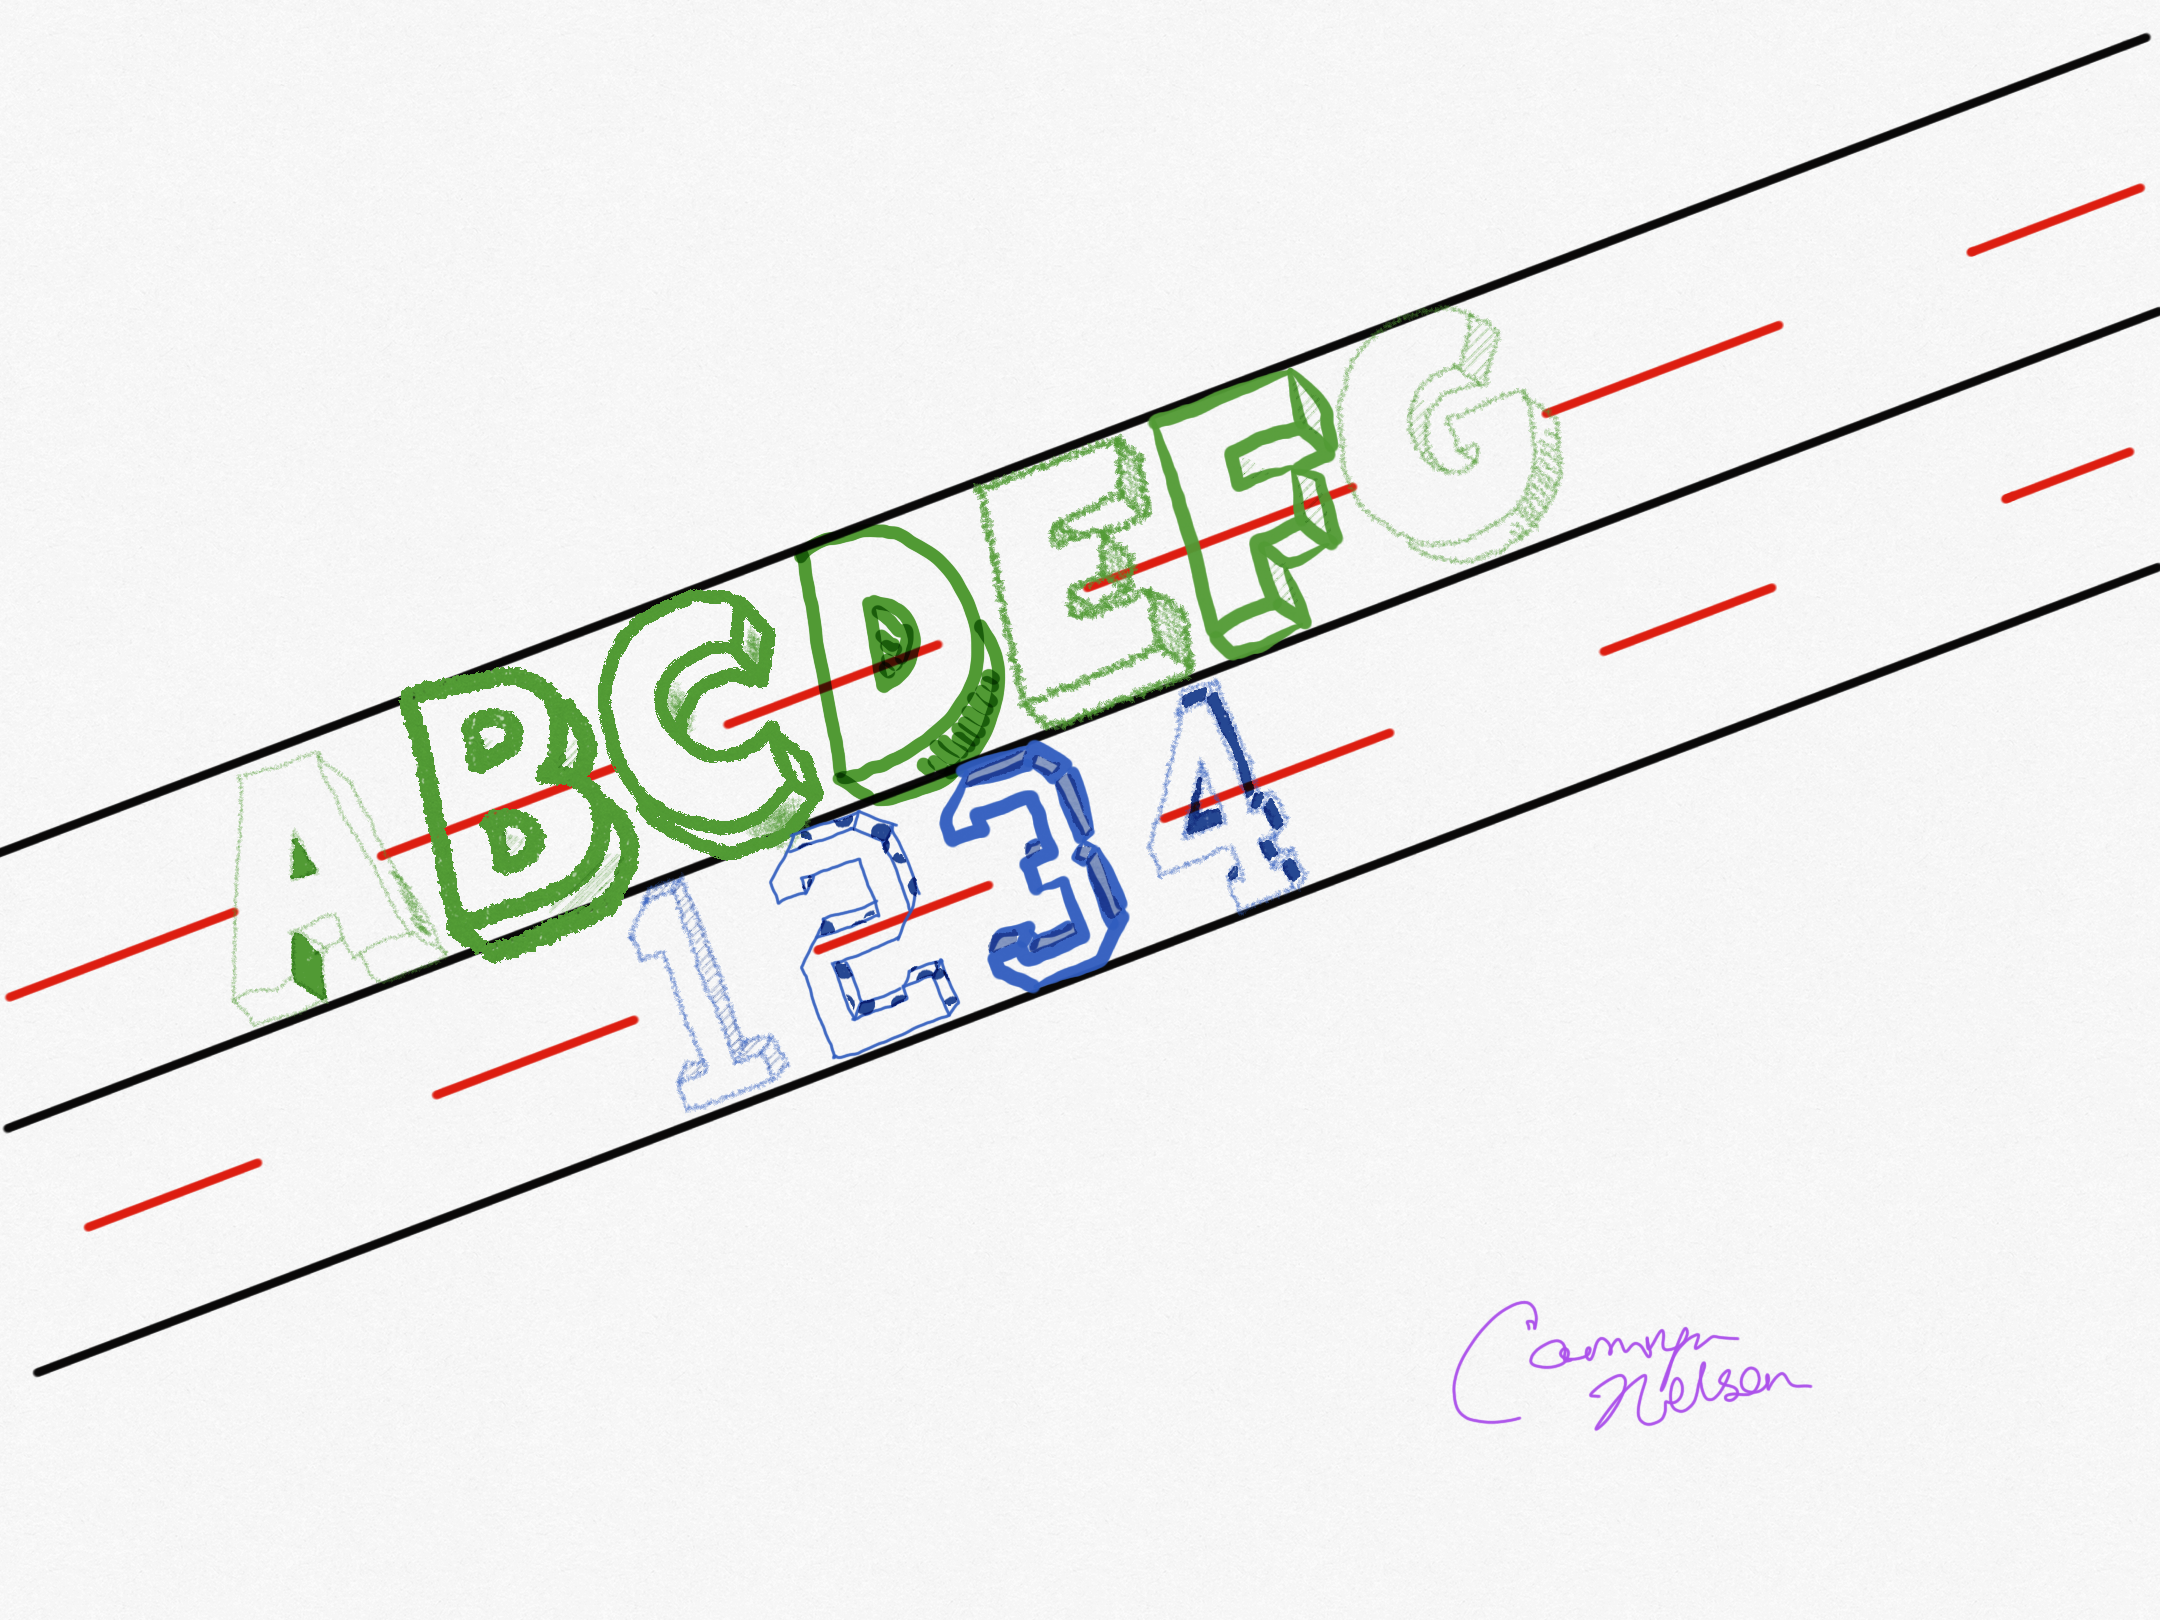 ABCDEFG
1234
Camryn
Nelson